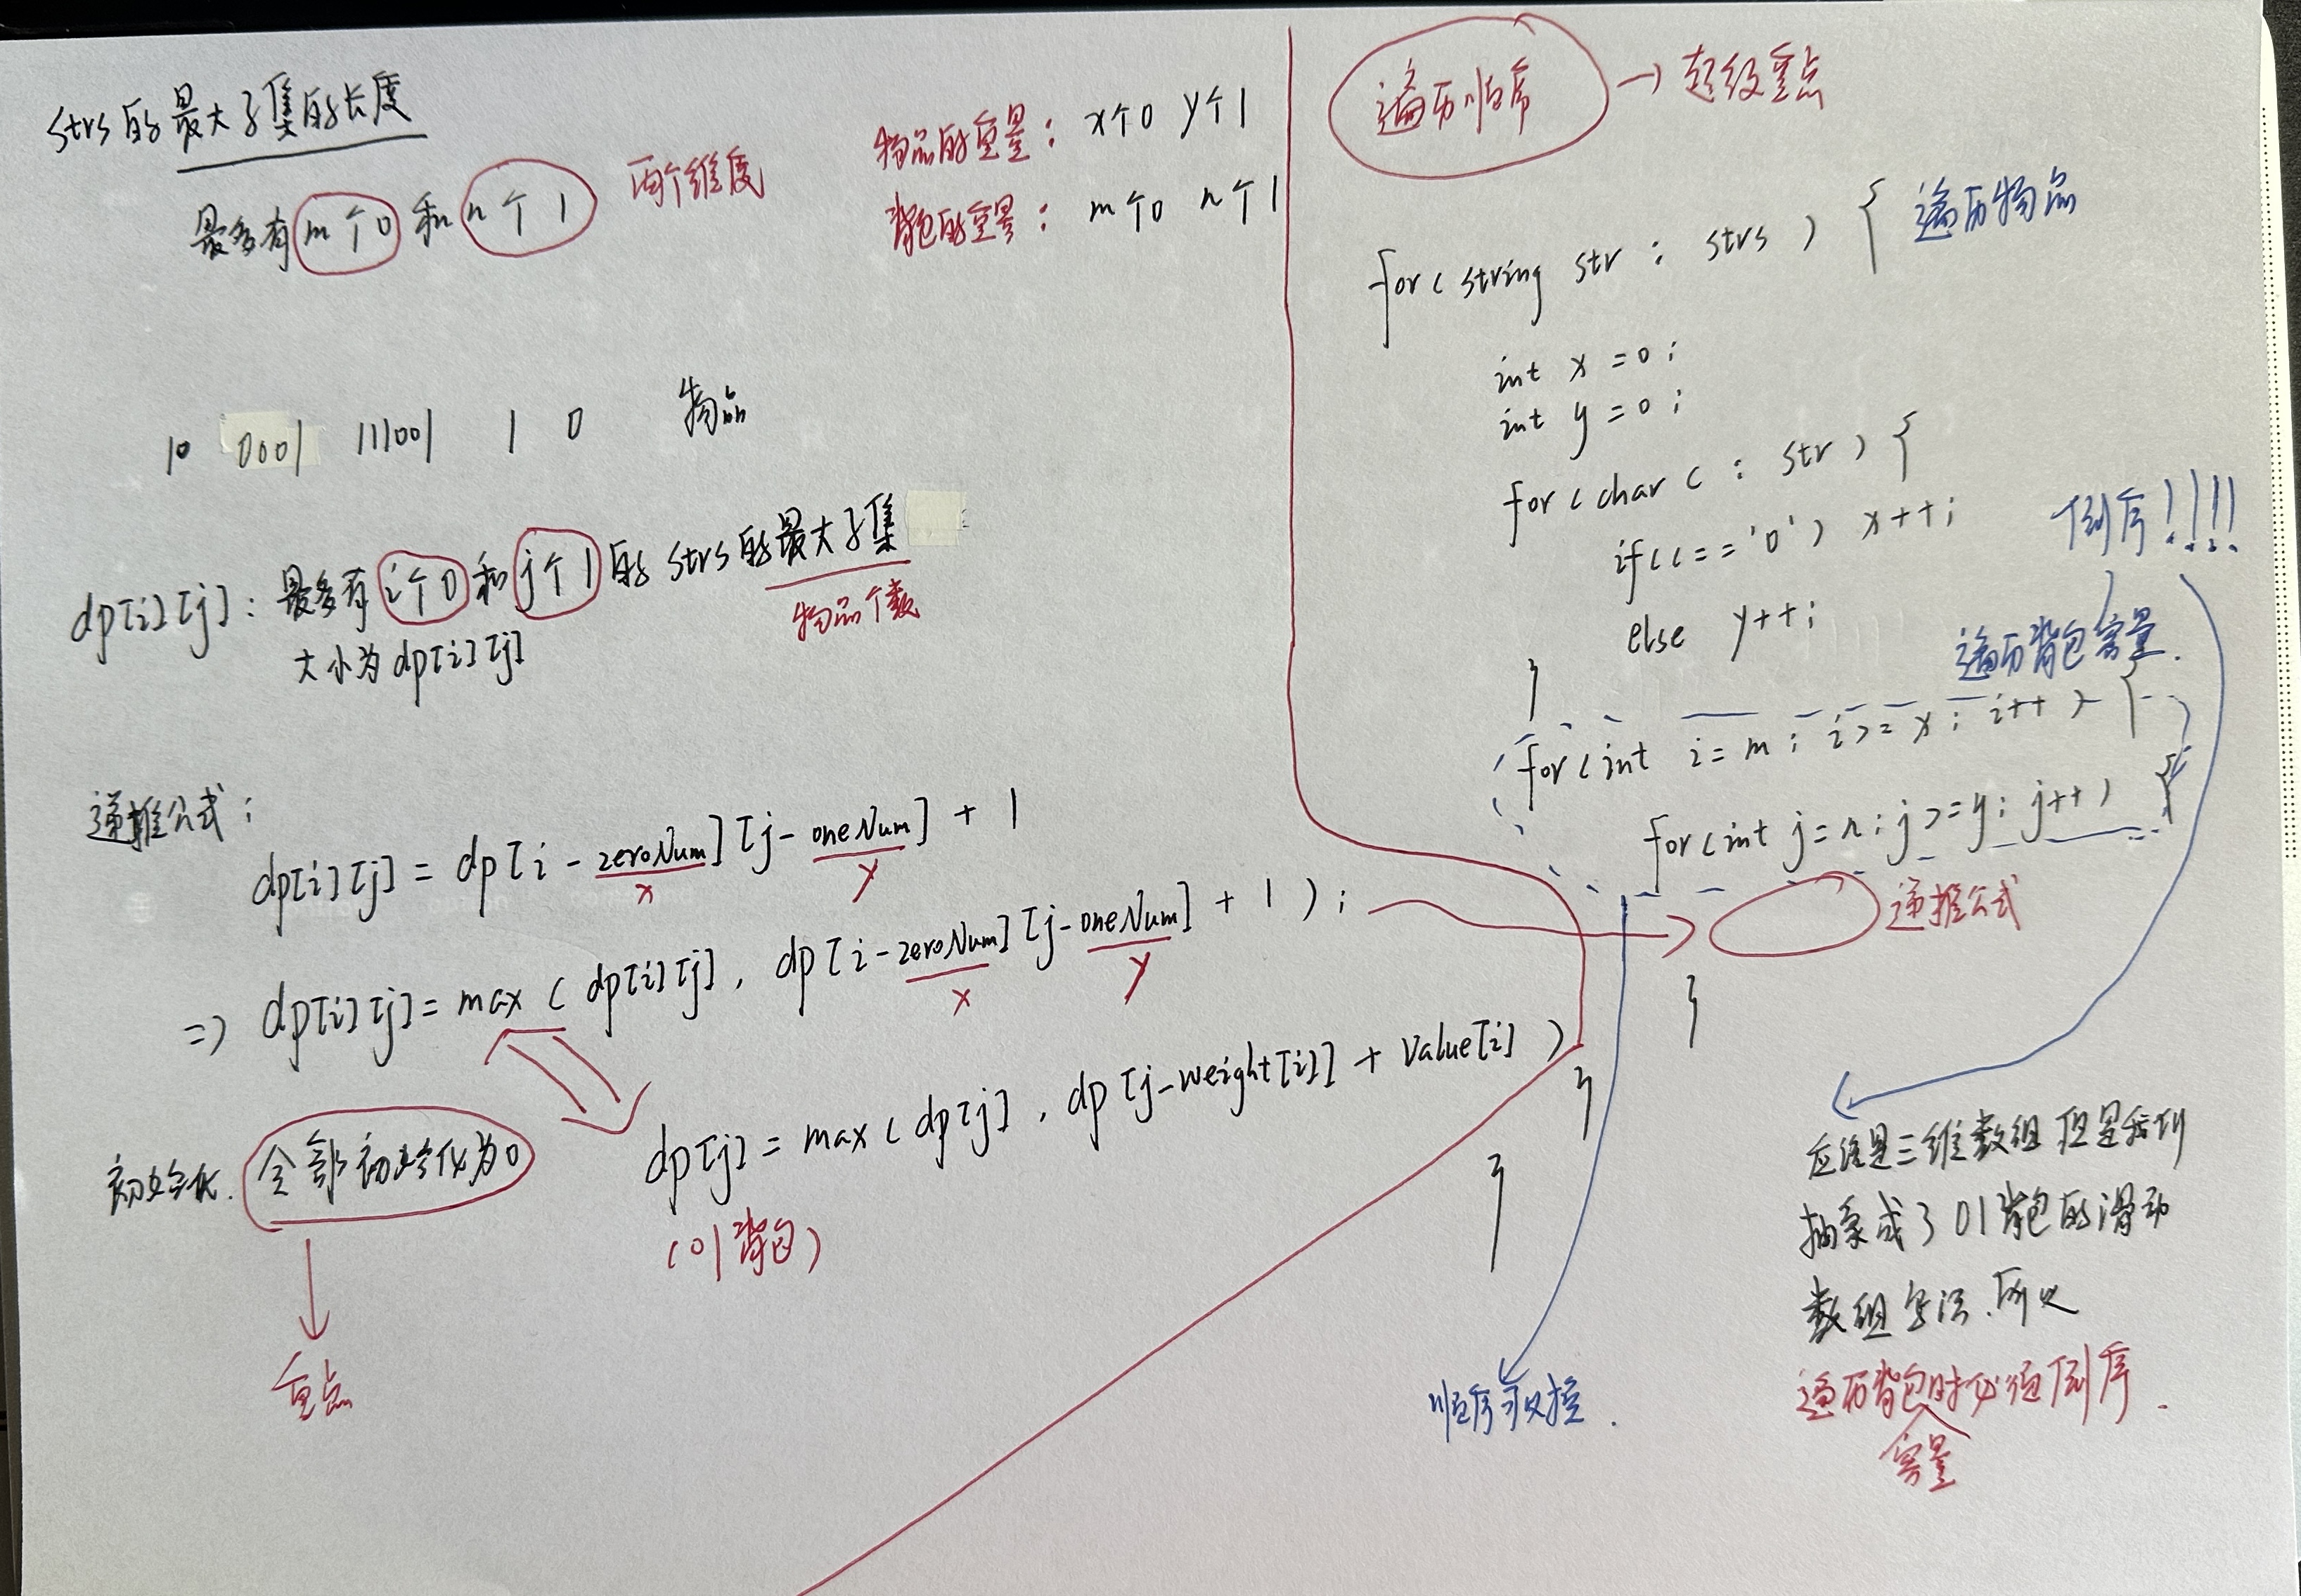 strs的最大子集的长度
最多有m个0和n个1 两个维度
物品的重量: x个0 y个1
背包的容量: m个0 n个1
10 0001 111001 1 0 物品
dp[i][j]: 最多有i个0和j个1的strs的最大子集
物品个数
大小为dp[i][j]
递推公式:
dp[i][j] = dp[i-zeroNum][j-oneNum] + 1
x y
=> dp[i][j] = max(dp[i][j], dp[i-zeroNum][j-oneNum] + 1);
x y
dp[j] = max(dp[j], dp[j-weight[i]] + value[i])
(01背包)
初始化. 全部初始化为0
重点
遍历顺序 → 超级重点
for(string str : strs) { 遍历物品
int x = 0;
int y = 0;
for(char c : str) {
if(c == '0') x++;
else y++;
}
倒序!!!!
遍历背包容量.
for(int i = m; i >= x; i++) {
for(int j = n; j >= y; j++) {
递推公式
}
}
}
应该是三维数组 但是我们
抽象成了01背包的滑动
数组写法.所以
遍历背包时必须倒序.
容量
顺序可以换.